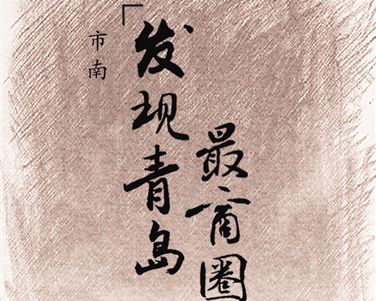 「发现青岛
最商圈
市南